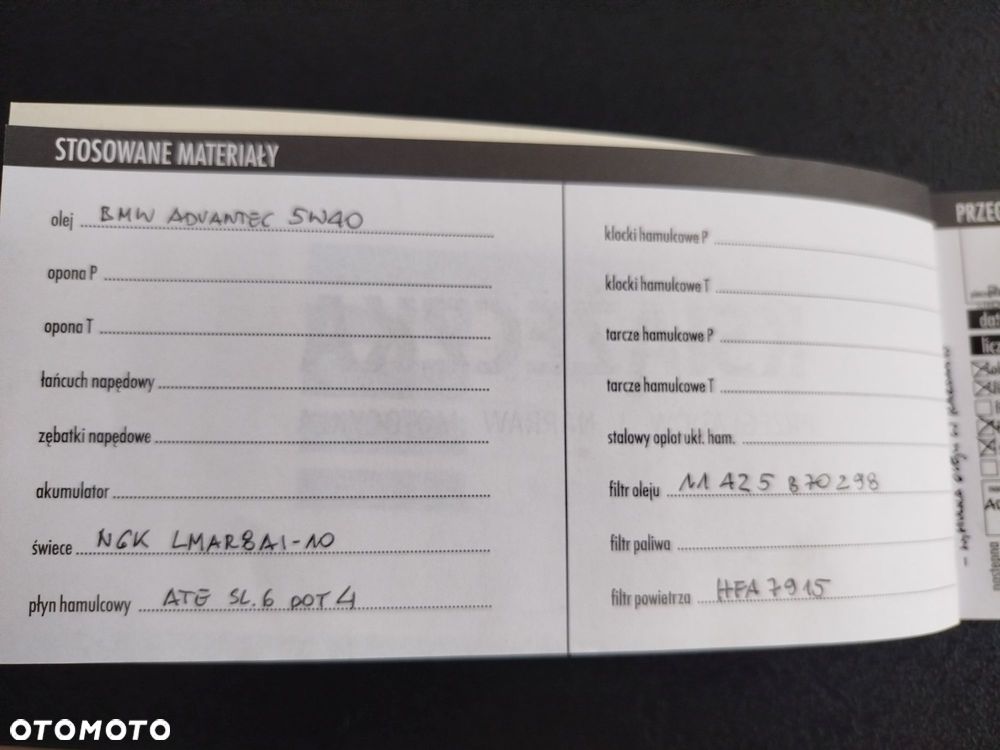 STOSOWANE MATERIAŁY
olej BMW ADVANTEC 5W40
opona P
opona T
łańcuch napędowy
zębatki napędowe
akumulator
świece NGK LMAR8AI-10
płyn hamulcowy ATE SL.6 DOT 4
klocki hamulcowe P
klocki hamulcowe T
tarcze hamulcowe P
tarcze hamulcowe T
stalowy oplot ukł. ham.
filtr oleju 11 42 5 870 298
filtr paliwa
filtr powietrza HFA 7915
PRZEG
dat
licz
OTOMOTO